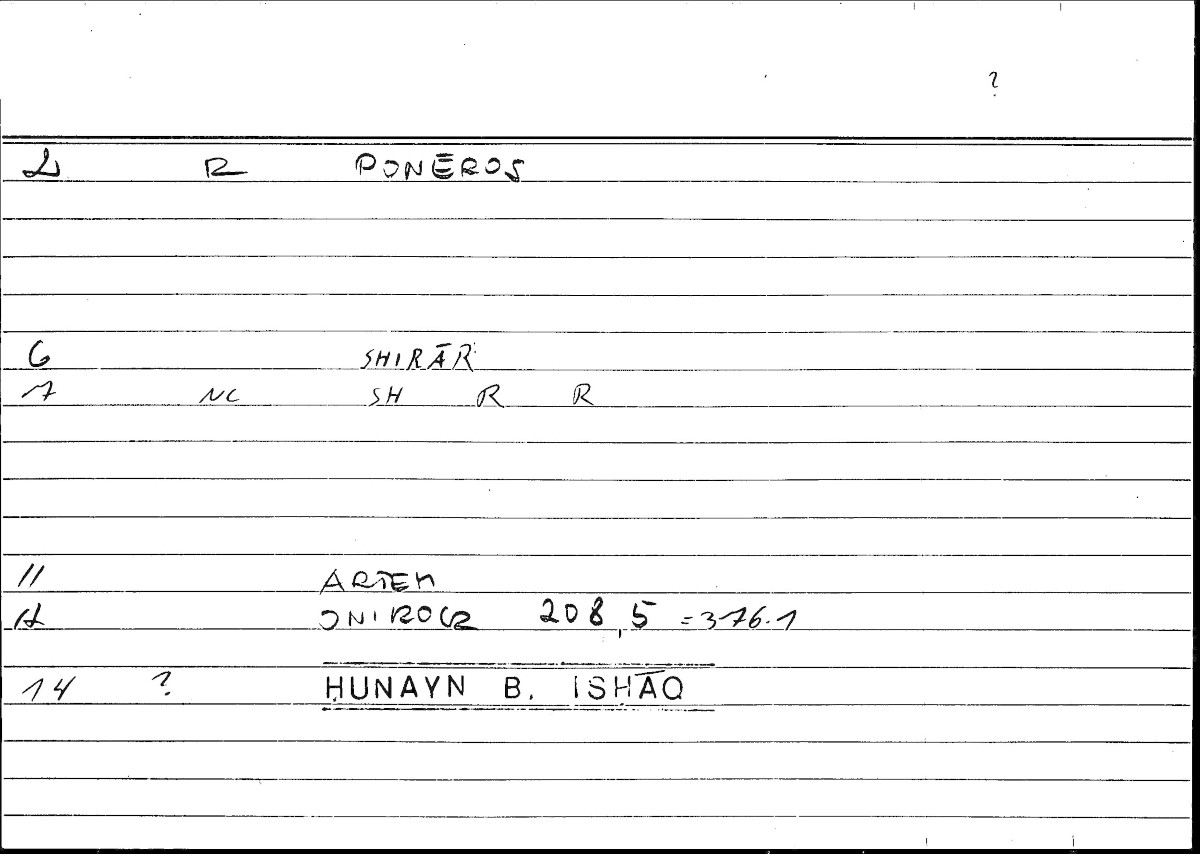 ?
2 R PONĒROS
6 SHIRĀR
7 NC SH R R
11 ARTEM
12 ONIROCR 208,5 = 376.1
14 ? ḤUNAYN B. ISḤĀQ